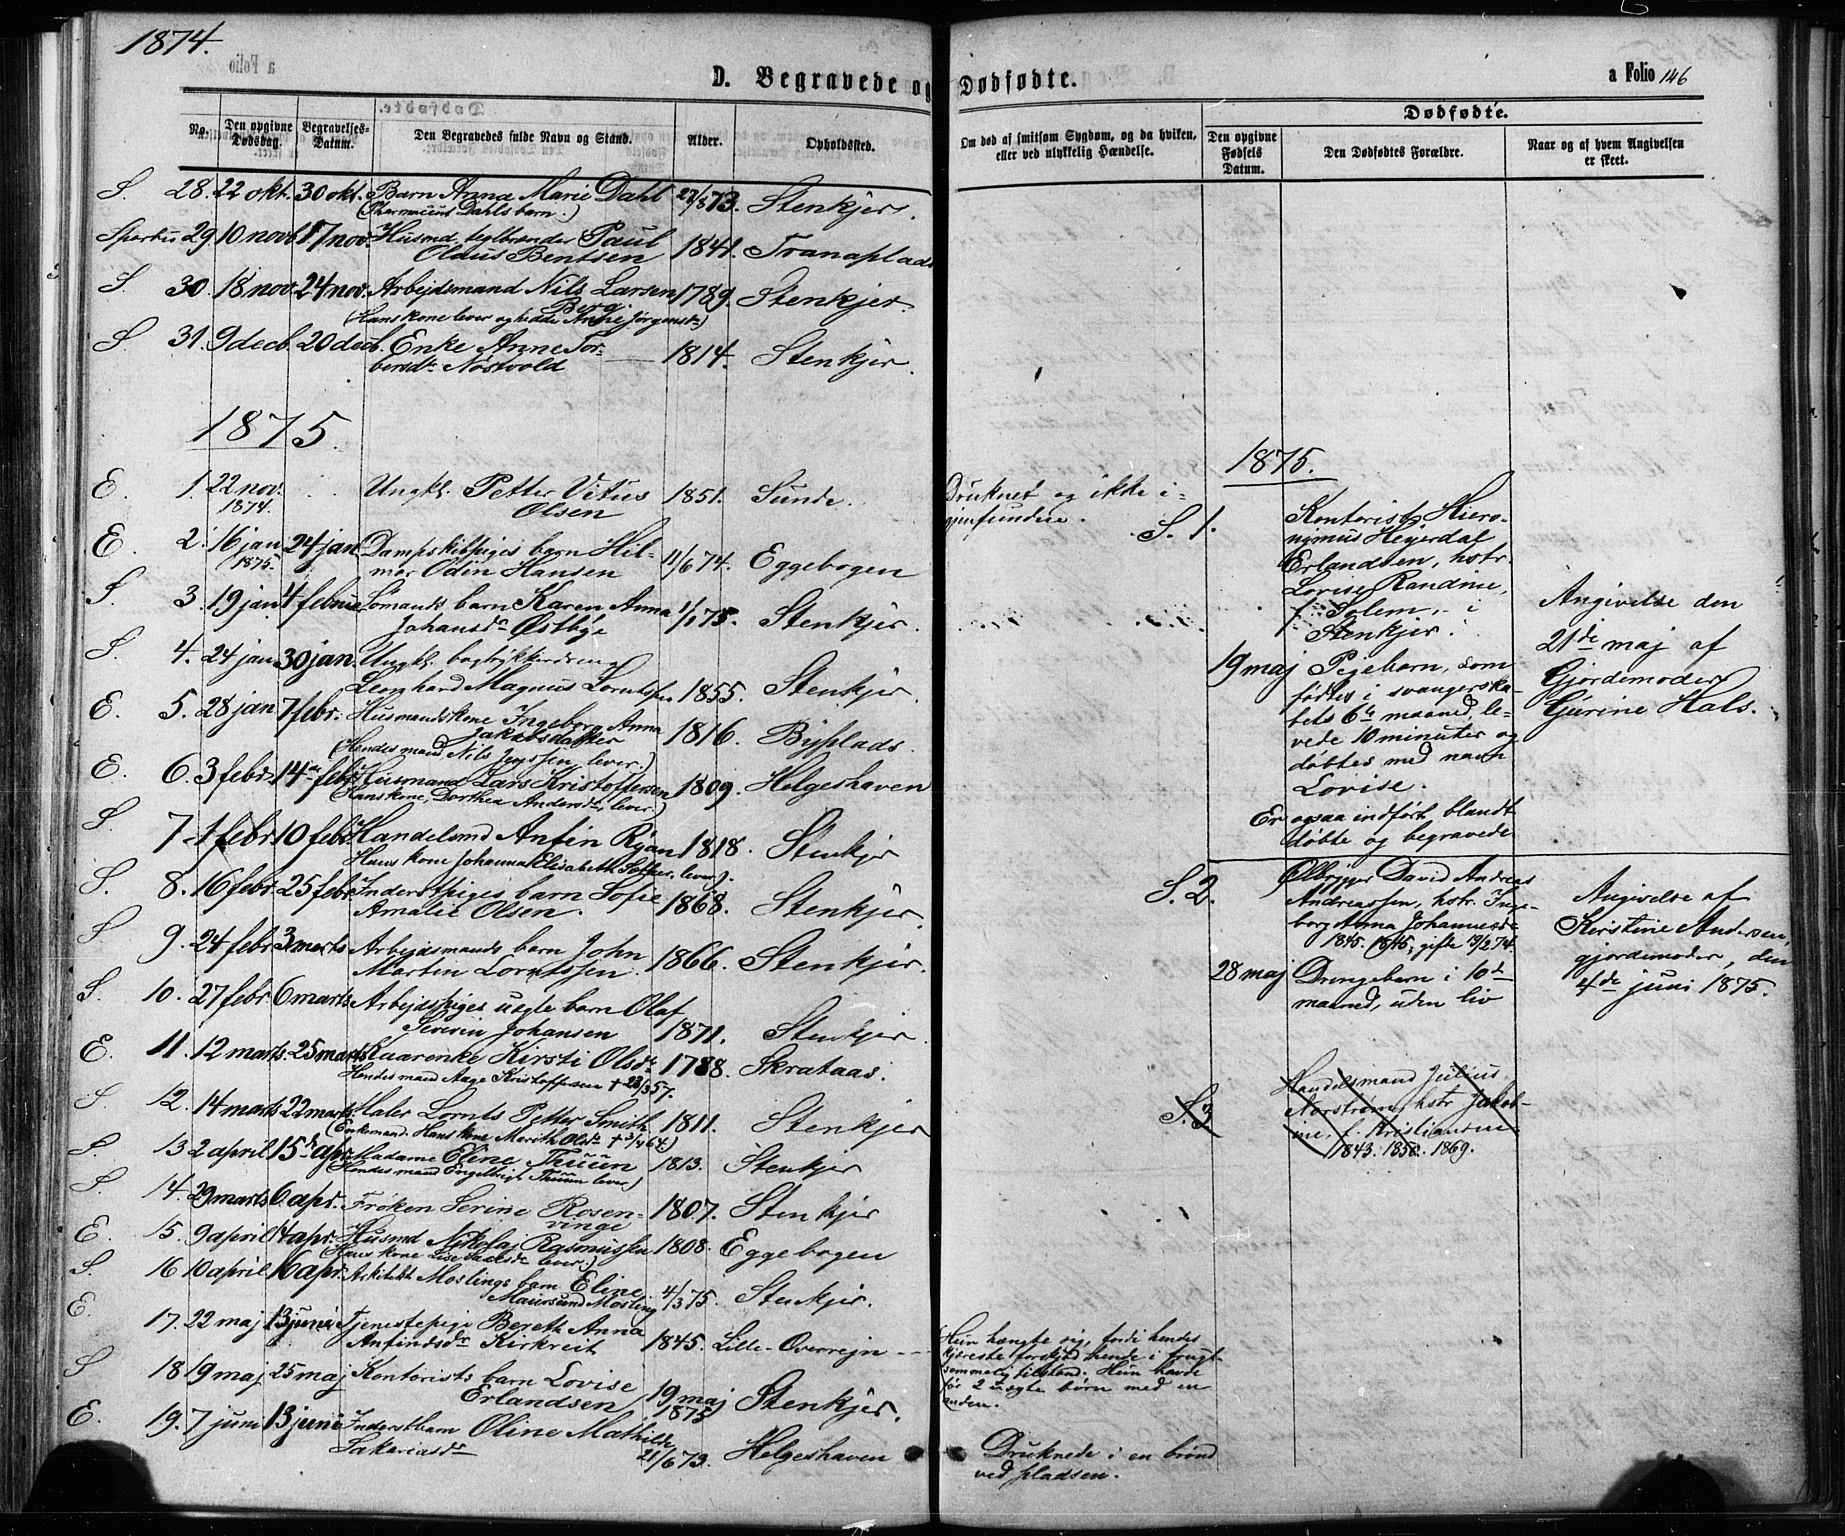 1874.
D. Begravede og Dødfødte.
a Folio 146
No. Den opgivne Dødsdag. Begravelses-Datum. Den Begravedes fulde Navn og Stand. Alder. Opholdssted.
Om død af smitsom Sygdom, og da hvilken, eller ved ulykkelig Hændelse.
Dødfødte.
Den opgivne Fødsels Datum. Den Dødfødtes Forældre. Naar og af hvem Angivelsen er skeet.
S. 28. 22 okt. 30 okt. Barn Anna Marie Dahl 73. Stenkjer.
(Pharmaceut Dahls barn.)
Sparbu 29 10 novb 17 nov Husmd. teglbrænder Paul
Oldus Bentsen 1841. Tranaplads
S. 30. 18 nov. 24 nov. Arbejdsmand Nils Larsen 1789. Stenkjer.
Berg
(Hans kone lever og hedder Anne Jørgensdr)
S 31. 9 decb. 20 decb. Enke Anne Tor-
bersdr Nøstvold 1814. Stenkjer.
1875.
E. 1. 22 nov. 1874. Ungkl. Petter Vitus
Olsen 1851. Sunde.
Druknet og ikke i-
gjenfunden.
E. 2. 16 jan 1875. 24 jan Dampskibspiges barn Hil-
mar Odin Hansen 11/6 74. Eggebogen
S. 3. 19 jan 4 februar Sømands barn Karen Anna
Johansdr Østbye 1/1 75. Stenkjer.
S. 4. 24 jan 30 jan. Ungkl. bogtykkerdreng
Leonhard Magnus Lorntsen 1855. Stenkjer.
E. 5. 28 jan 7 febr. Husmandskone Ingeborg Anna
Jakobsdatter 1816. Byplads.
(Hendes mand Nils Jenssen, lever.)
E. 6. 3 febr 14 febr Husmand Lars Kristoffersen 1809. Helgeshaven
(Hans kone, Dorthea Andersdr, lever.)
S. 7 1 febr 10 febr Handelsmd Anfin Ryan 1818. Stenkjer
Hans kone Johanna Elisabeth lever.)
S. 8. 16 febr. 25 febr Inderstpiges barn Sofie
Amalie Olsen. 1868. Stenkjer.
S 9. 24 febr 3 marts Arbejdsmands barn John
Martin Lorntssen. 1866. Stenkjer.
S. 10. 27 febr 6 marts Arbejdspiges uægte barn Olaf
Severin Johansen 1871. Stenkjer.
E. 11. 12 marts 25 marts Kaarenke Kirsti Olsdr 1788. Skrataas.
Hendes mand Aage Kristoffersen † 23/3 57.
S. 12. 14 marts 22 marts. Maler Lornts Petter Smith 1811. Stenkjer
(Enkemand. Hans kone Merith Olsdr † 64.)
S. 13 2 april 15 apr. Madame Eline Thuun 1813. Stenkjer
Hendes mand Engelbrigt Thuun lever)
S. 14. 29 marts 6 apr. Frøken Serine Rosen-
vinge 1807. Stenkjer
E. 15. 9 april 14 apr. Husmd Nikolaj Rasmussen 1808. Eggebogen
(Hans kone lever.)
S. 16 10 april 16 apr. Arkitekt Moslings barn Eline
Maursund Mosling 4/3 75. Stenkjer.
E. 17. 22 maj 13 juni Tjenestepige Bereth Anna
Anfindsdr Kirkreit 1845. Lille-Overrejn
Hun hængte sig, fordi hendes
kjæreste forskjød hende i frugt-
sommelig tilstand. Hun havde
før 2 uægte børn med en
anden.
S 18 19 maj 25 maj Kontorists barn Lovise
Erlandsen 19 maj 1875 Stenkjer.
E. 19. 7 juni 13 juni Inderstbarn Oline Mathilde
Sakeriasdr 21/6 73. Helgeshaven
Druknede i en brønd
ved pladsen.
1875.
S. 1. Kontorist Hiero-
nymus Heyerdal
Erlandsen, hstr.
Lovise Randine,
f. Solem, i
Stenkjer.
19 maj Pigebarn, som
fødtes i svangerska-
bets 6te maaned, le-
vede 10 minuter og
døbtes med navn
Lovise.
Er ogsaa indført blandt
døbte og begravede
Angivelse den
21de maj af
Gjordemoder
Gurine Hals.
S. 2. Ølbrygger David Andreas
Andreassen, hstr. Inge-
borg Anna Johannesdr
1845. 1845, gifte 74.
28 maj Drengebarn i 10de
maaned, uden liv
Angivelse af
Kirstine Andersen,
gjordemoder, den
4de juni 1875.
S. 3 Handelsmand Julius
Norstrøm, hstr Jakob-
ine, f. Kristiansen
1843. 1850. 1869.